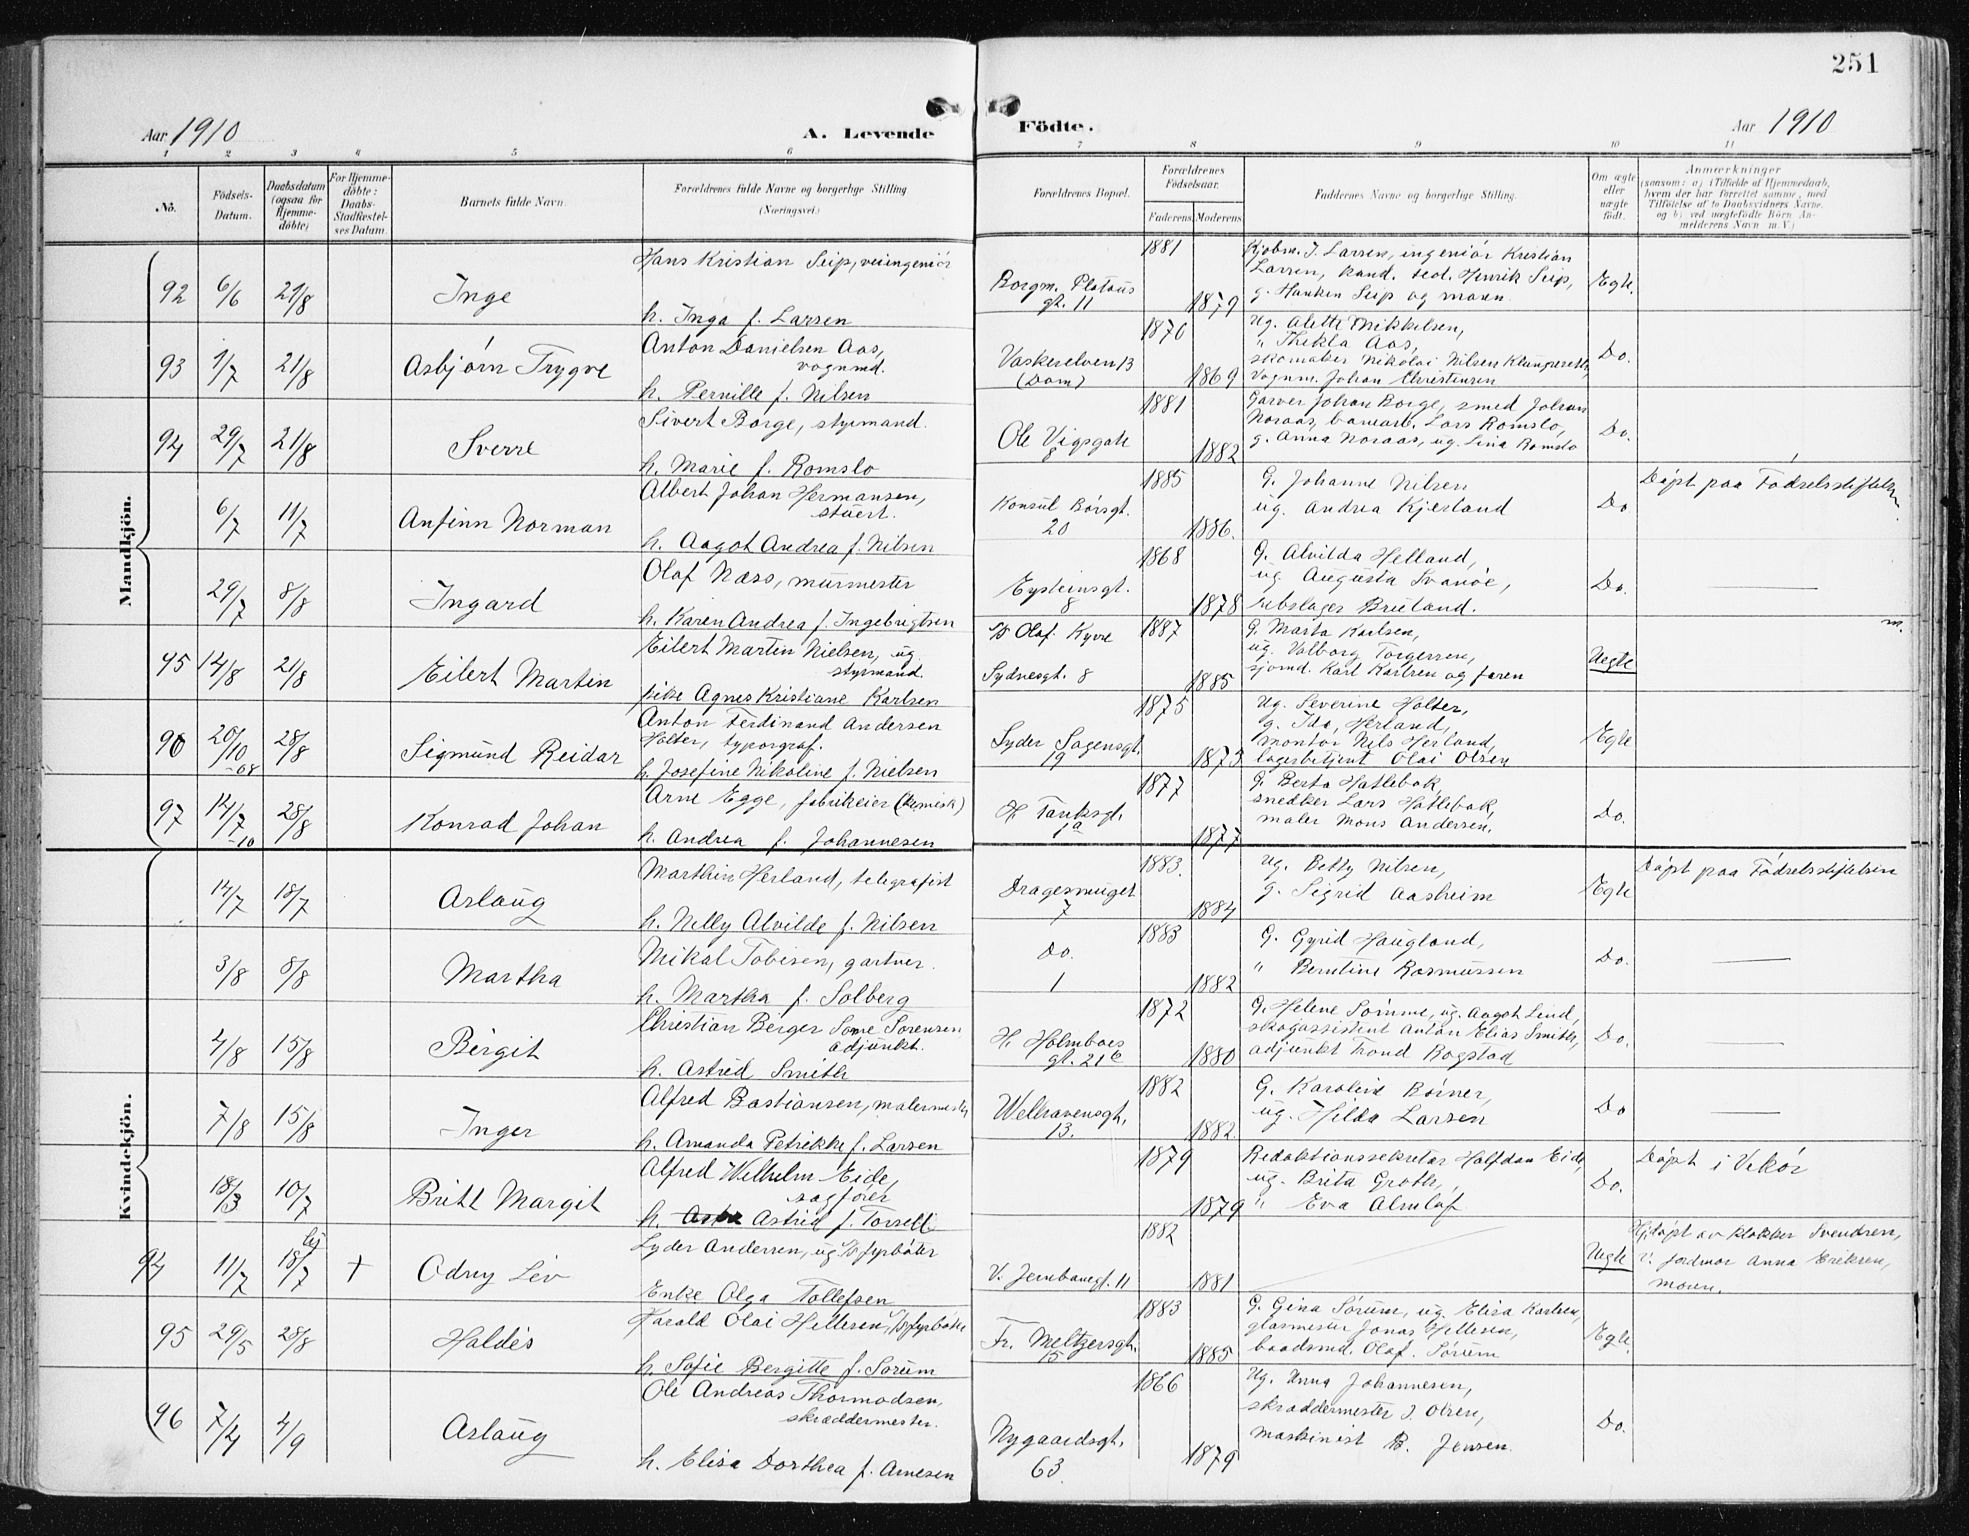 251
Aar 1910
A. Levende
Födte.
Aar 1910
1 2 3 4 5 6 7 8 9 10 11
No.
Födsels-
Datum.
Daabsdatum
(ogsaa for
Hjemme-
döbte)
For Hjemme-
döbte:
Daabs-
Stadfæstel-
ses Datum.
Barnets fulde Navn.
Forældrenes fulde Navne og borgerlige Stilling
(Næringsvei.)
Forældrenes Bopæl.
Forældrenes
Födselsaar.
Faderens. Moderens.
Faddernes Navne og borgerlige Stilling.
Om ægte
eller
uægte
födt.
Anmærkninger
(saasom: a) i Tilfælde af Hjemmedaab,
hvem der har forrettet samme, med
Tilföielse af to Daabsvidners Navne.
og b) ved uægtefödte Börn An-
melderens Navn m. V.)
Mandkjön.
92 6/6 21/8 Inge
Hans Kristian Seip, veiingeniör
h. Inga f. Larsen
Borgm. Platous
gt. 11
1881 1879
Kjöbm. J. Larsen, ingeniör Kristian
Larsen, kand. teol. Henrik Seip,
g. Hanken Seip og moren.
Egte.
93 1/7 21/8 Asbjörn Trygve
Anton Danielsen Aas,
vognmd.
h. Pernille f. Nilsen
Vaskerelven 13
(Dom)
1870 1869
Ug. Alette Mikkelsen,
" Thekla Aas,
skomaker Nikolai Nilsen
Vognm. Johan Christensen
Do.
94 29/7 21/8 Sverre
Sivert Borge, styrmand.
h. Marie f. Romslo
Ole Vigsgate
8
1881 1882
Garver Johan Borge, smed Johan
Noraas, banearb. Lars Romslo,
g. Anna Noraas, ug. Lina Romslo
Do.
6/7 11/7 Anfinn Norman
Albert Johan Hermansen,
stuert.
h. Aagot Andrea f. Nilsen
Konsul Börsgt.
20
1885 1886.
G. Johanne Nilsen
ug. Andrea Kjerland
Do
Döpt paa Födselsstiftelsen
29/7 8/8 Ingard
Olaf Næss, murmester
h. Karen Andrea f. Ingebrigtsen
Eysteinsgt.
8
1868 1878
G. Alvilda Helland,
ug. Augusta Svanöe,
rebslager Bruland.
Do.
95 14/8 21/8 Eilert Martin
Eilert Martin Nielsen, ug.
styrmand.
pike Agnes Kristiane Karlsen
Olaf Kyrre
Sydnesgt. 8
1887 1885
G. Marta Karlsen,
ug. Valborg Torgersen,
sjömd. Karl Karlsen og faren
Uegte
m.
96 20/10 -08 28/8 Sigmund Reidar
Anton Ferdinand Andersen
Holter, typograf.
h. Josefine Nikoline f. Nielsen
Lyder Sagensgt.
19
1875 1873
Ug. Severine Holter,
g. Ida Herland,
montör Nils Herland,
lagerbetjent Olai Olsen
Egte
97 14/7 -10 28/8 Konrad Johan
Arne Egge, fabrikeier (kemisk)
h. Andrea f. Johannesen
H Tanksgt.
1a
1877 1877
G. Berta Hatlebak,
snedker Lars Hatlebak,
maler Mons Andersen.
Do.
Kvindekjön.
14/7 18/7 Aslaug
Marthin Herland, telegrafist
h. Nelly Alvilde f. Nilsen
Dragesmuget
7
1883. 1884
Ug. Betty Nilsen,
g. Sigrid Aasheim
Egte
Döpt paa Födselsstiftelsen
3/8 8/8 Martha
Mikal Tobisen, gartner.
h. Martha f. Solberg
Do.
1
1883 1882
G. Gyrid Haugland,
" Berntine Rasmussen
Do.
4/8 15/8 Bergit
Christian Berger Some Sorensen
adjunkt.
h. Astrid Smith
H. Holmboes
gt. 21b
1872 1880
G. Helene Sömme, ug. Aagot Lind,
skogassistent Anton Elias Smith,
adjunkt Trond Rogstad
Do.
7/8 15/8 Inger
Alfred Bastiansen, malermester
h. Amanda Petrikke f. Larsen
Welhavensgt.
13.
1882 1882.
G. Karoline Börner,
ug. Hilda Larsen
Do
18/3 10/7 Britt Margit
Alfred Wilhelm Eide,
sagförer
h. Astrid f. Torsell
1879 1879
Redaktionssekretær Halfdan Eide,
ug. Brita Groth,
" Eva Almlöf
Do.
Döpt i Vikör
94 11/7 18/7 + Odny Liv
Lyder Andersen, ug. fyrböter
Enke Olga Tollefsen
V. Jernbanegt. 11
1882 1881
Uegte
Hj.döpt av klokker Svendsen,
V. jordmor Anna Eriksen,
moren.
95 29/5 28/8 Haldis
Harald Olai Hellesen, fyrböter
h. Sofie Bergitte f. Sorum
Fr. Meltzersgt.
15
1883 1885
G. Gina Sörum, ug. Elisa Karlsen,
glasmester Jonas Hellesen,
baadsmd. Olaf Sörum
Egte.
96 7/4 4/9 Aslaug
Ole Andreas Thormodsen,
skræddermester.
h. Elisa Dorthea f. Arnesen
Nygaardsgt.
63.
1866 1879
Ug. Anna Johannesen,
skræddermester J. Olsen,
maskinist B. Jensen.
Do.